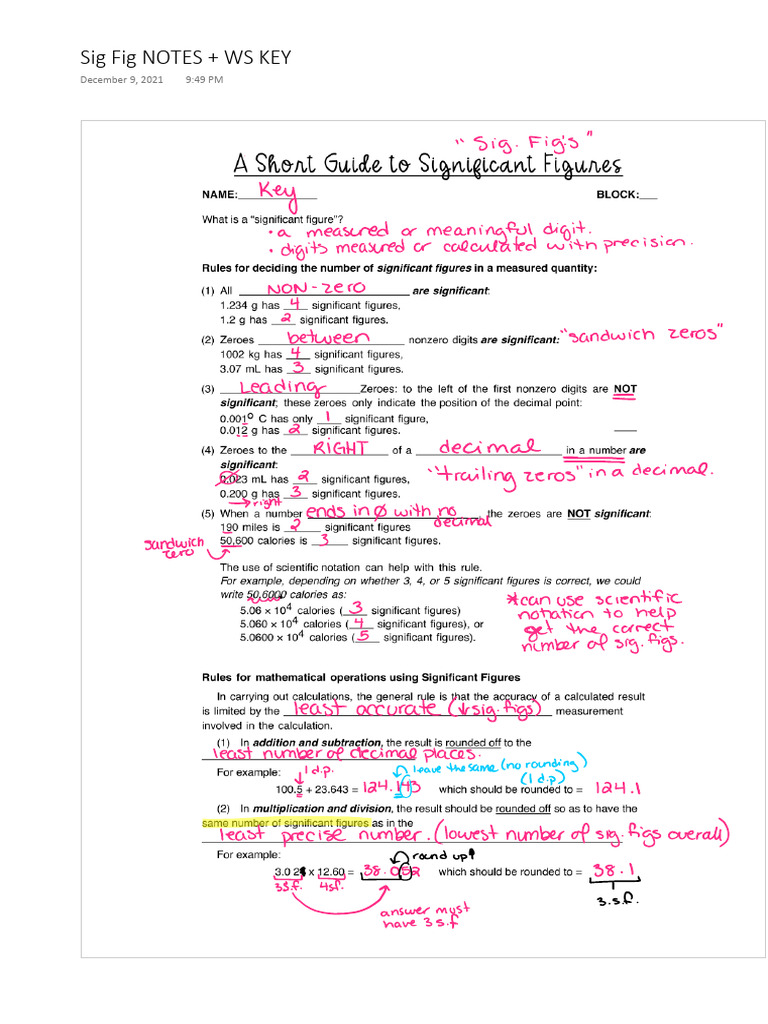 Sig Fig NOTES + WS KEY
December 9, 2021 9:49 PM
"Sig. Fig's"
A Short Guide to Significant Figures
NAME: Key BLOCK:___
What is a “significant figure”?
• a measured or meaningful digit.
• digits measured or calculated with precision.
Rules for deciding the number of significant figures in a measured quantity:
(1) All NON-zero are significant:
1.234 g has 4 significant figures,
1.2 g has 2 significant figures.
(2) Zeroes between nonzero digits are significant: "sandwich zeros"
1002 kg has 4 significant figures,
3.07 mL has 3 significant figures.
(3) Leading Zeroes: to the left of the first nonzero digits are NOT
significant; these zeroes only indicate the position of the decimal point:
0.001º C has only 1 significant figure,
0.012 g has 2 significant figures.
(4) Zeroes to the RIGHT of a decimal in a number are
significant:
"trailing zeros" in a decimal.
0.023 mL has 2 significant figures,
0.200 g has 3 significant figures.
→ right
(5) When a number ends in 0 with no decimal the zeroes are NOT significant:
190 miles is 2 significant figures
50,600 calories is 3 significant figures.
sandwich zero
The use of scientific notation can help with this rule.
For example, depending on whether 3, 4, or 5 significant figures is correct, we could
write 50,6000 calories as:
5.06 × 10⁴ calories (3 significant figures)
5.060 × 10⁴ calories (4 significant figures), or
5.0600 × 10⁴ calories (5 significant figures).
*can use scientific
notation to help
get the correct
number of sig. figs.
Rules for mathematical operations using Significant Figures
In carrying out calculations, the general rule is that the accuracy of a calculated result
is limited by the least accurate (↓sig. figs) measurement
involved in the calculation.
(1) In addition and subtraction, the result is rounded off to the
least number of decimal places.
For example:
1 d.p.
leave the same (no rounding)
(1 d.p)
100.5 + 23.643 = 124.143 which should be rounded to = 124.1
(2) In multiplication and division, the result should be rounded off so as to have the
same number of significant figures as in the
least precise number. (lowest number of sig. figs overall)
For example:
round up!
3.0 2 x 12.60 = 38.052 which should be rounded to = 38.1
3s.f. 4s.f.
3.s.f.
answer must
have 3 s.f